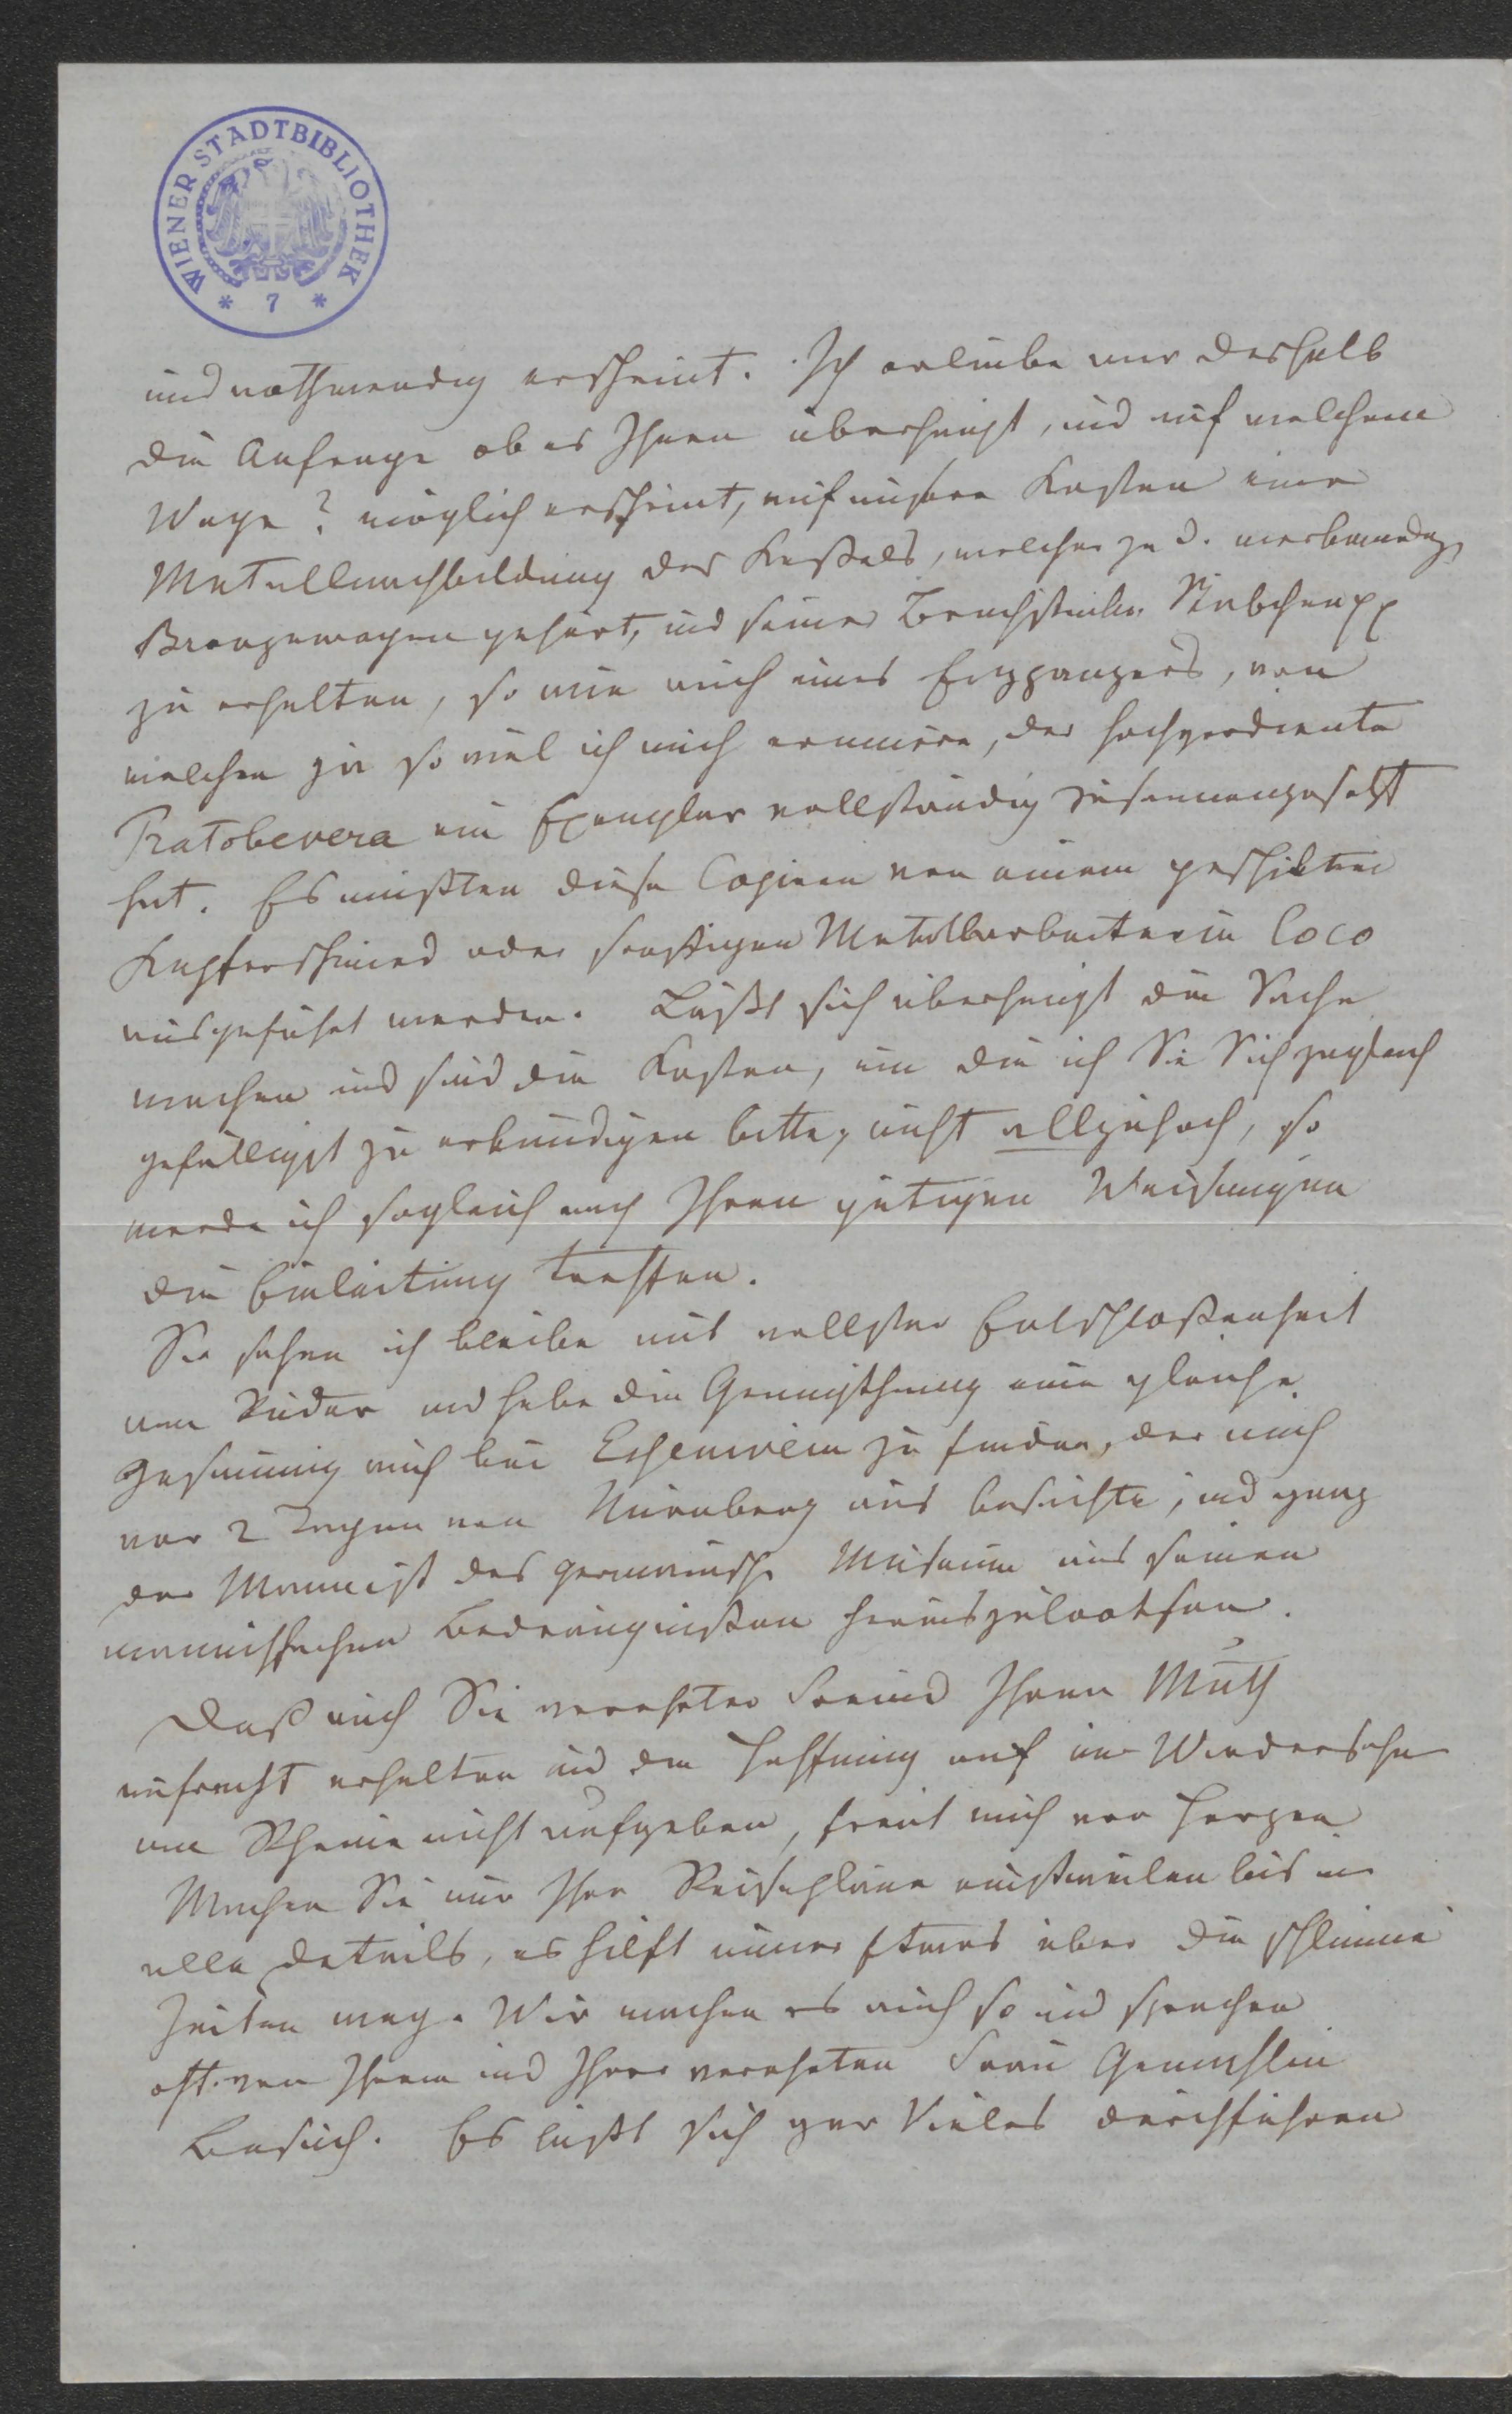 WIENER STADTBIBLIOTHEK
* 7 *
und nothwendig erscheint. Ich erlaube mir deshalb
die Anfrage ob es Ihnen überhaupt, und auf welchem
Wege? möglich erscheint, auf unsere Kosten eine
Metallnachbildung des Keßels, welcher zu d. merkwürdg
Bronzewagen gehört, und seiner Bruchstücke Stäbchen pp
zu erhalten, so wie auch eines Erzpanzers, von
welchen ja so viel ich mich erinnere, der hochverdiente
Pratobevera ein Exemplar vollständig zusammengesetzt
hat. Es müßten diese Copieen von einem geschikten
Kupferschmied oder sonstigen Metallarbeiter in loco
ausgeführt werden. Läßt sich überhaupt die Sache
machen und sind die Kosten, um die ich Sie Sich zugleich
gefälligst zu erkundigen bitte, nicht allzuhoch, so
werde ich sogleich nach Ihren gütigen Weisungen
die Einleitung treffen.
Sie sehen ich bleibe mit vollster Entschloßenheit
am Ruder und habe die Genugthuung eine gleiche
Gesinnung auch bei Essenwein zu finden, der mich
vor 2 Tagen von Nürnberg aus besuchte, und ganz
der Mann ist das germanische Museum aus seinen
mannichfachen Bedrängnißen herauszulootsen.
Daß auch Sie verehrter Freund Ihren Muth
aufrecht erhalten und die Hoffnung auf ein Wiedersehn
am Rheine nicht aufgeben, freut mich von Herzen
Machen Sie nur Ihre Reisepläne einstweilen bis in
alle Details, es hilft immer Etwas über die schlimme
Zeiten weg. Wir machen es auch so und sprechen
oft von Ihrem und Ihrer verehrten Frau Gemahlin
Besuch. Es läßt sich gar Vieles durchführen